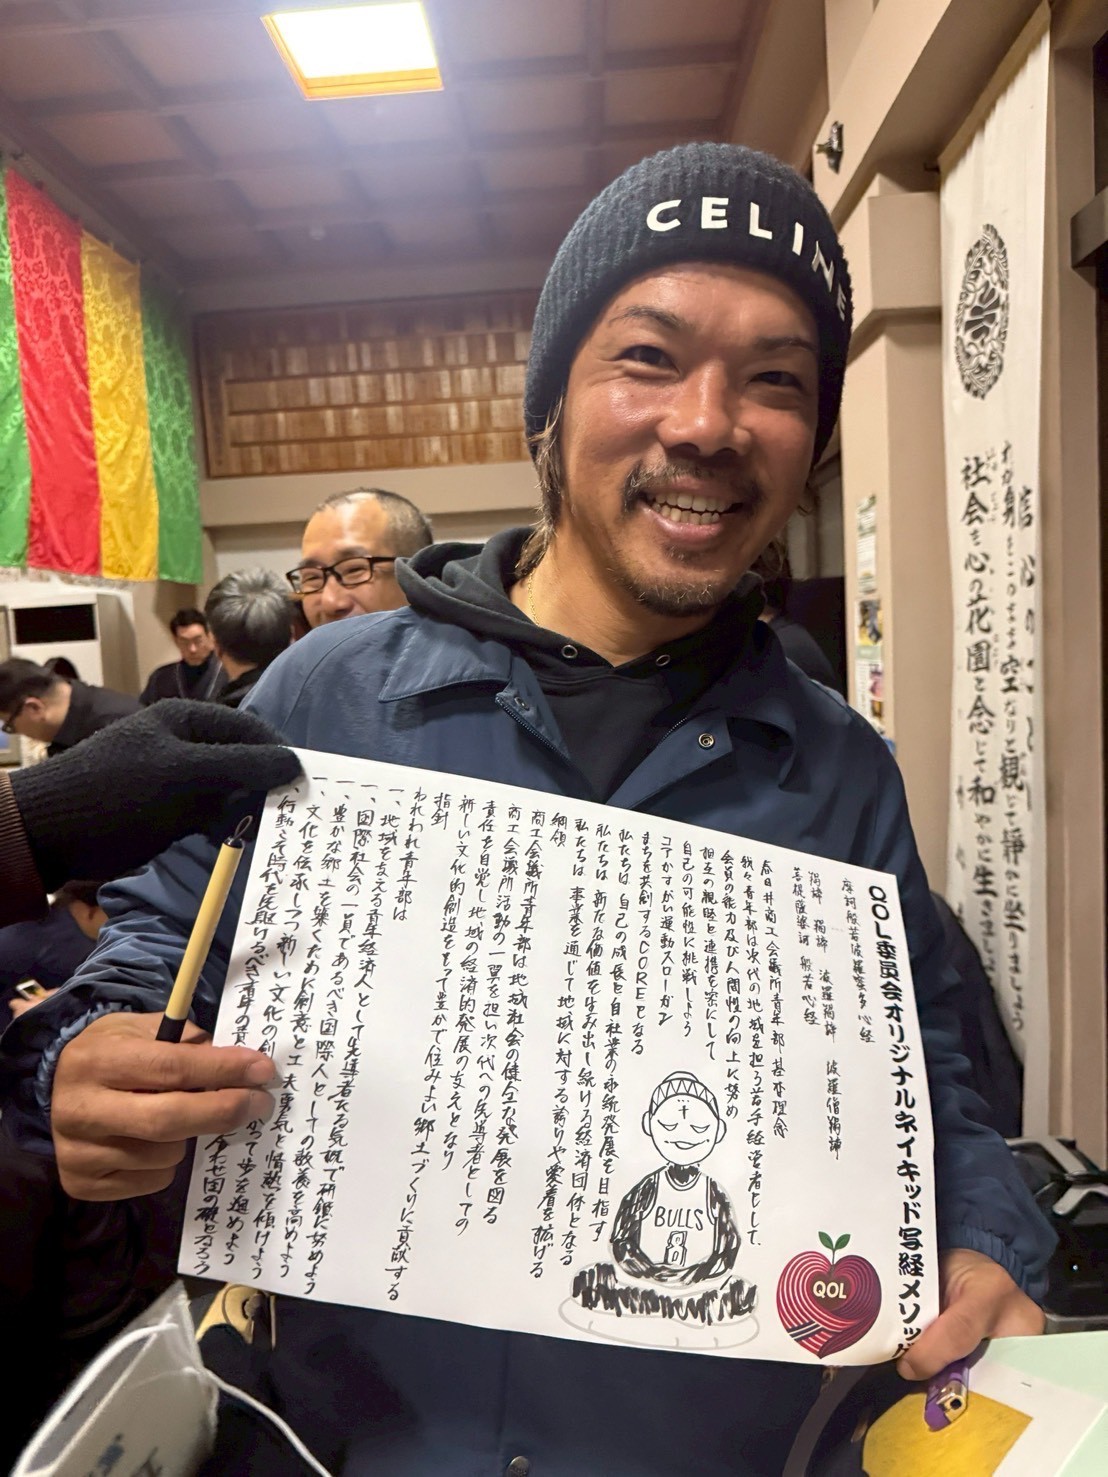 CELINE
QOL委員会オリジナルネイキッド写経メソッド
摩訶般若波羅蜜多心経
羯諦 羯諦 波羅羯諦 波羅僧羯諦
菩提薩婆訶 般若心経
春日井商工会議所青年部基本理念
我々青年部は次代の地域を担う若手経営者として、
会員の能力及び人間性の向上に努め
相互の親睦と連携を密にして
自己の可能性に挑戦しよう
コアかすがい運動スローガン
まちを共創するCOREとなる
私たちは 自己の成長と自社業の永続発展を目指す
私たちは 新たな価値を生み出し続ける経済団体となる
私たちは 事業を通じて地域に対する誇りや愛着を拡げる
綱領
商工会議所青年部は地域社会の健全な発展を図る
商工会議所活動の一翼を担い次代への先導者としての
責任を自覚し地域の経済的発展の支えとなり
新しい文化的創造をもって豊かで住みよい郷土づくりに貢献する
指針
われわれ青年部は
一、地域を支える青年経済人として先導者たる気概で研鑽に努めよう
一、国際社会の一員であるべき国際人としての教養を高めよう
一、豊かな郷土を築くために創意と工夫勇気と情熱を傾けよう
一、文化を伝承しつつ新しい文化の創 かって歩を進めよう
一、行動こそ時代を先取るべき青年の責 合わせ国の礎となろう
BULLS
8
QOL
信心のこころ
わが身をこのまま空なりと観じて静かに坐りましょう
社会を心の花園と念じて和やかに生きましょう